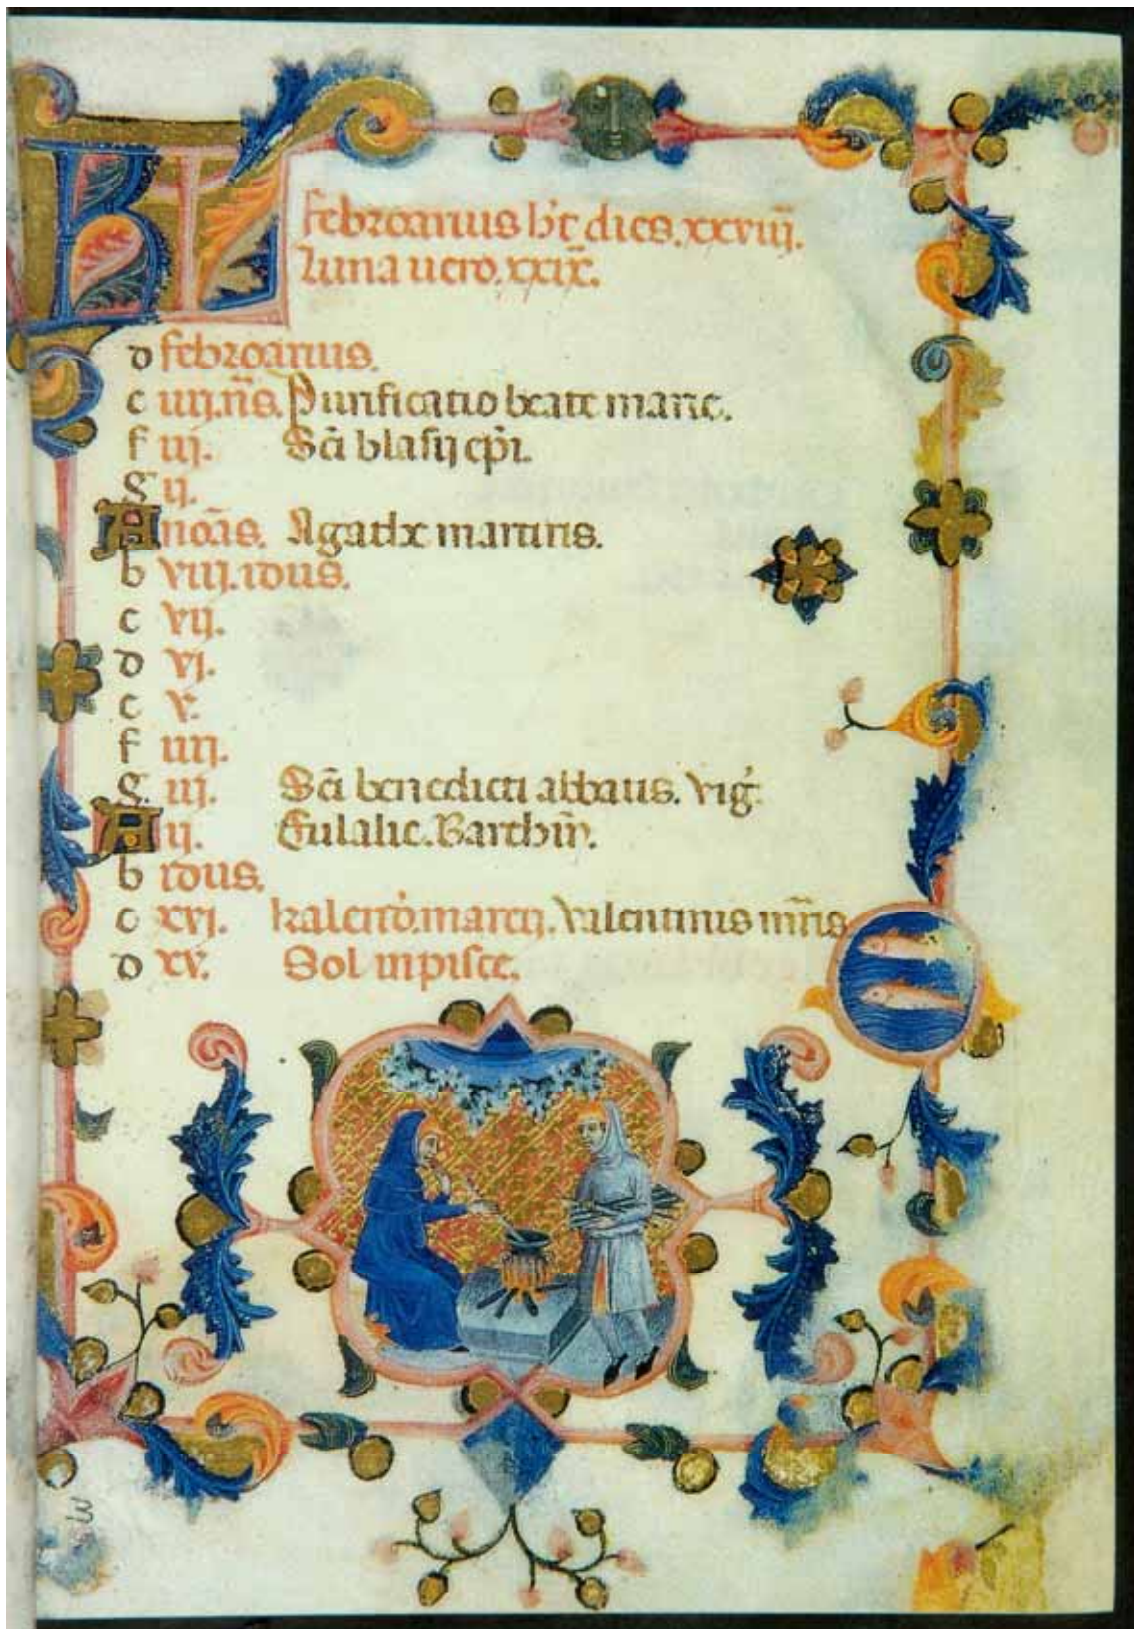 KL februarius h't dies. xxviij.
luna uero. xxix.
d februarius.
e iiij. ñs. Purificatio beate marie.
f iij. Sci blasij epi.
g ij.
A nonas. Agathe martiris.
b viij. idus.
c vij.
d vj.
e v.
f iiij.
g iij. Sci benedicti abbatis. vig'.
A ij. Eulalie.
b idus.
c xvj. kalend. marcij. Valentinus mris
d xv. Sol in pisce.